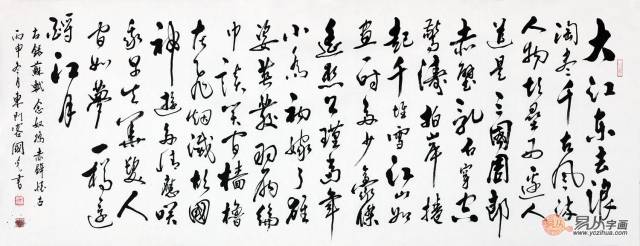 大江东去浪
淘尽千古风流
人物故垒西边人
道是三国周郎
赤壁乱石穿空
惊涛拍岸捲
起千堆雪江山如
画一时多少豪杰
遥想公瑾当年
小乔初嫁了雄
姿英发羽扇纶
巾谈笑间樯橹
灰飞烟灭故国
神游多情应笑
我早生华发人
间如梦一樽还
酹江月
右录苏轼念奴娇赤壁怀古
丙申冬月
国
书
易从字画
www.yczihua.com